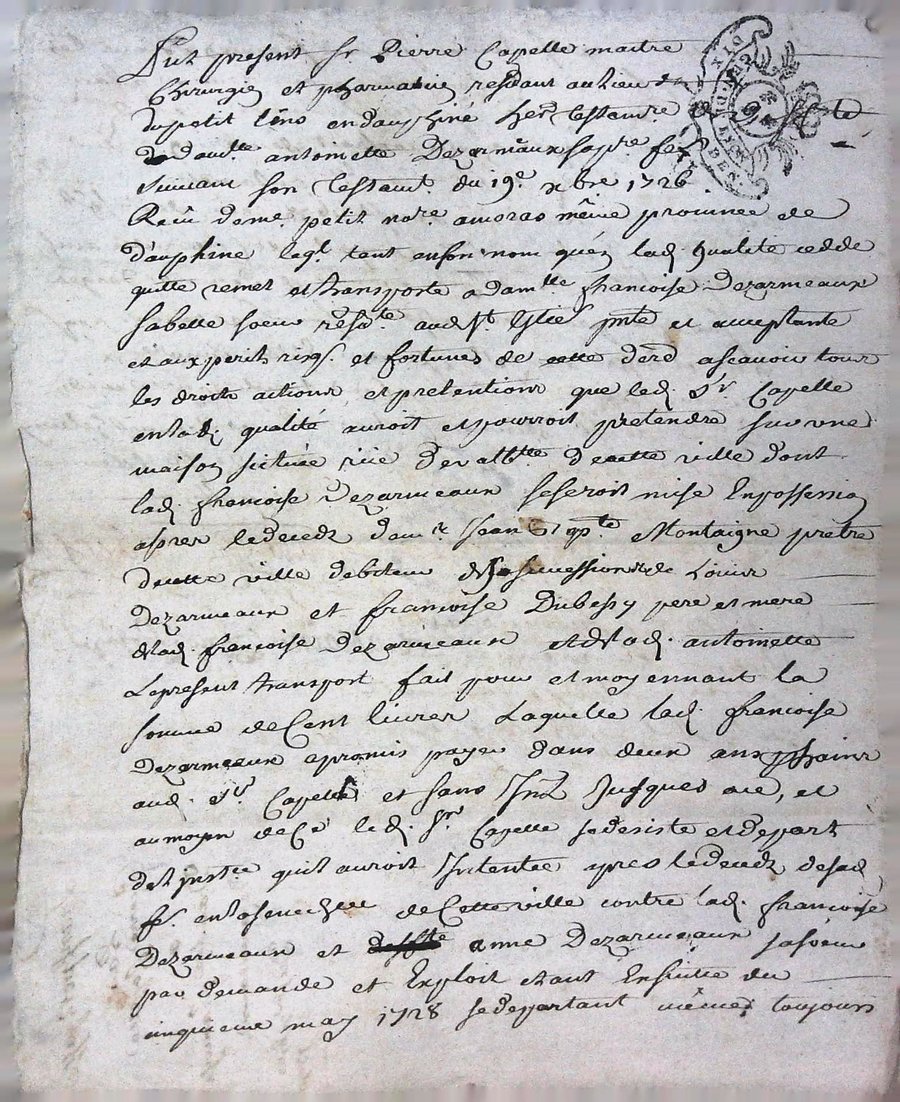 Fut present Sr Pierre Capelle maitre
Chirurgie et pharmacie residant au lieu
du petit en dauphiné her. Testam.re
de dam.lle antoinette Dezarmeaux sa f.e
suivant son testam.t du 19.e xbre 1726.
Recu petit no.re a moras même province de
d'auphine leql. tant en son nom qu'en lad. qualité cedde
quitte remet et transporte a dam.lle francoise Dezarmeaux
sa belle soeur resid.te aud. St p.nte et acceptante
et aux perils risq. et fortunes de cette der.e a scavoir tous
les droits actions et pretentions que led. S.r Capelle
en lad. qualité auroit et pourroit pretendre sur une
maison scituée rüe de cette ville dont
lad. francoise Dezarmeaux se seroit mise en possession
apres le decedz de m.re Jean Bap.te Montaigne pretre
de cette ville debiteur succession de Louis
Dezarmeaux et francoise Dubessy pere et mere
de lad. francoise Dezarmeaux et de lad. antoinette
Le present transport fait pour et moyennant la
somme de Cent livres Laquelle lad. francoise
Dezarmeaux a promis payer dans deux ans
aud. S.r Capelle et sans Jusques a ce, et
au moyen de Ce led. Sr Capelle se desiste et depart
de l'inst.ce qu'il auroit Intentée apres le decedz de sad.
f.e en la de Cette ville contre lad. francoise
Dezarmeaux et anne Dezarmeaux sa soeur
par demande et Exploit Ensuitte du
cinquieme may 1728 se departant même toujours